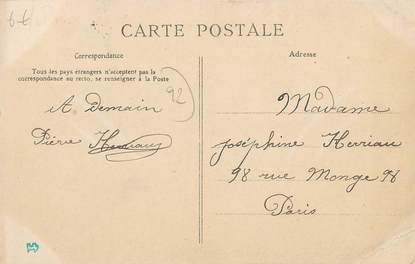 66
CARTE POSTALE
Correspondance
Tous les pays étrangers n'acceptent pas la
correspondance au recto, se renseigner à la Poste
A Demain
92
Pierre
Adresse
Madame
Joséphine Herriau
98 rue Monge 98
Paris